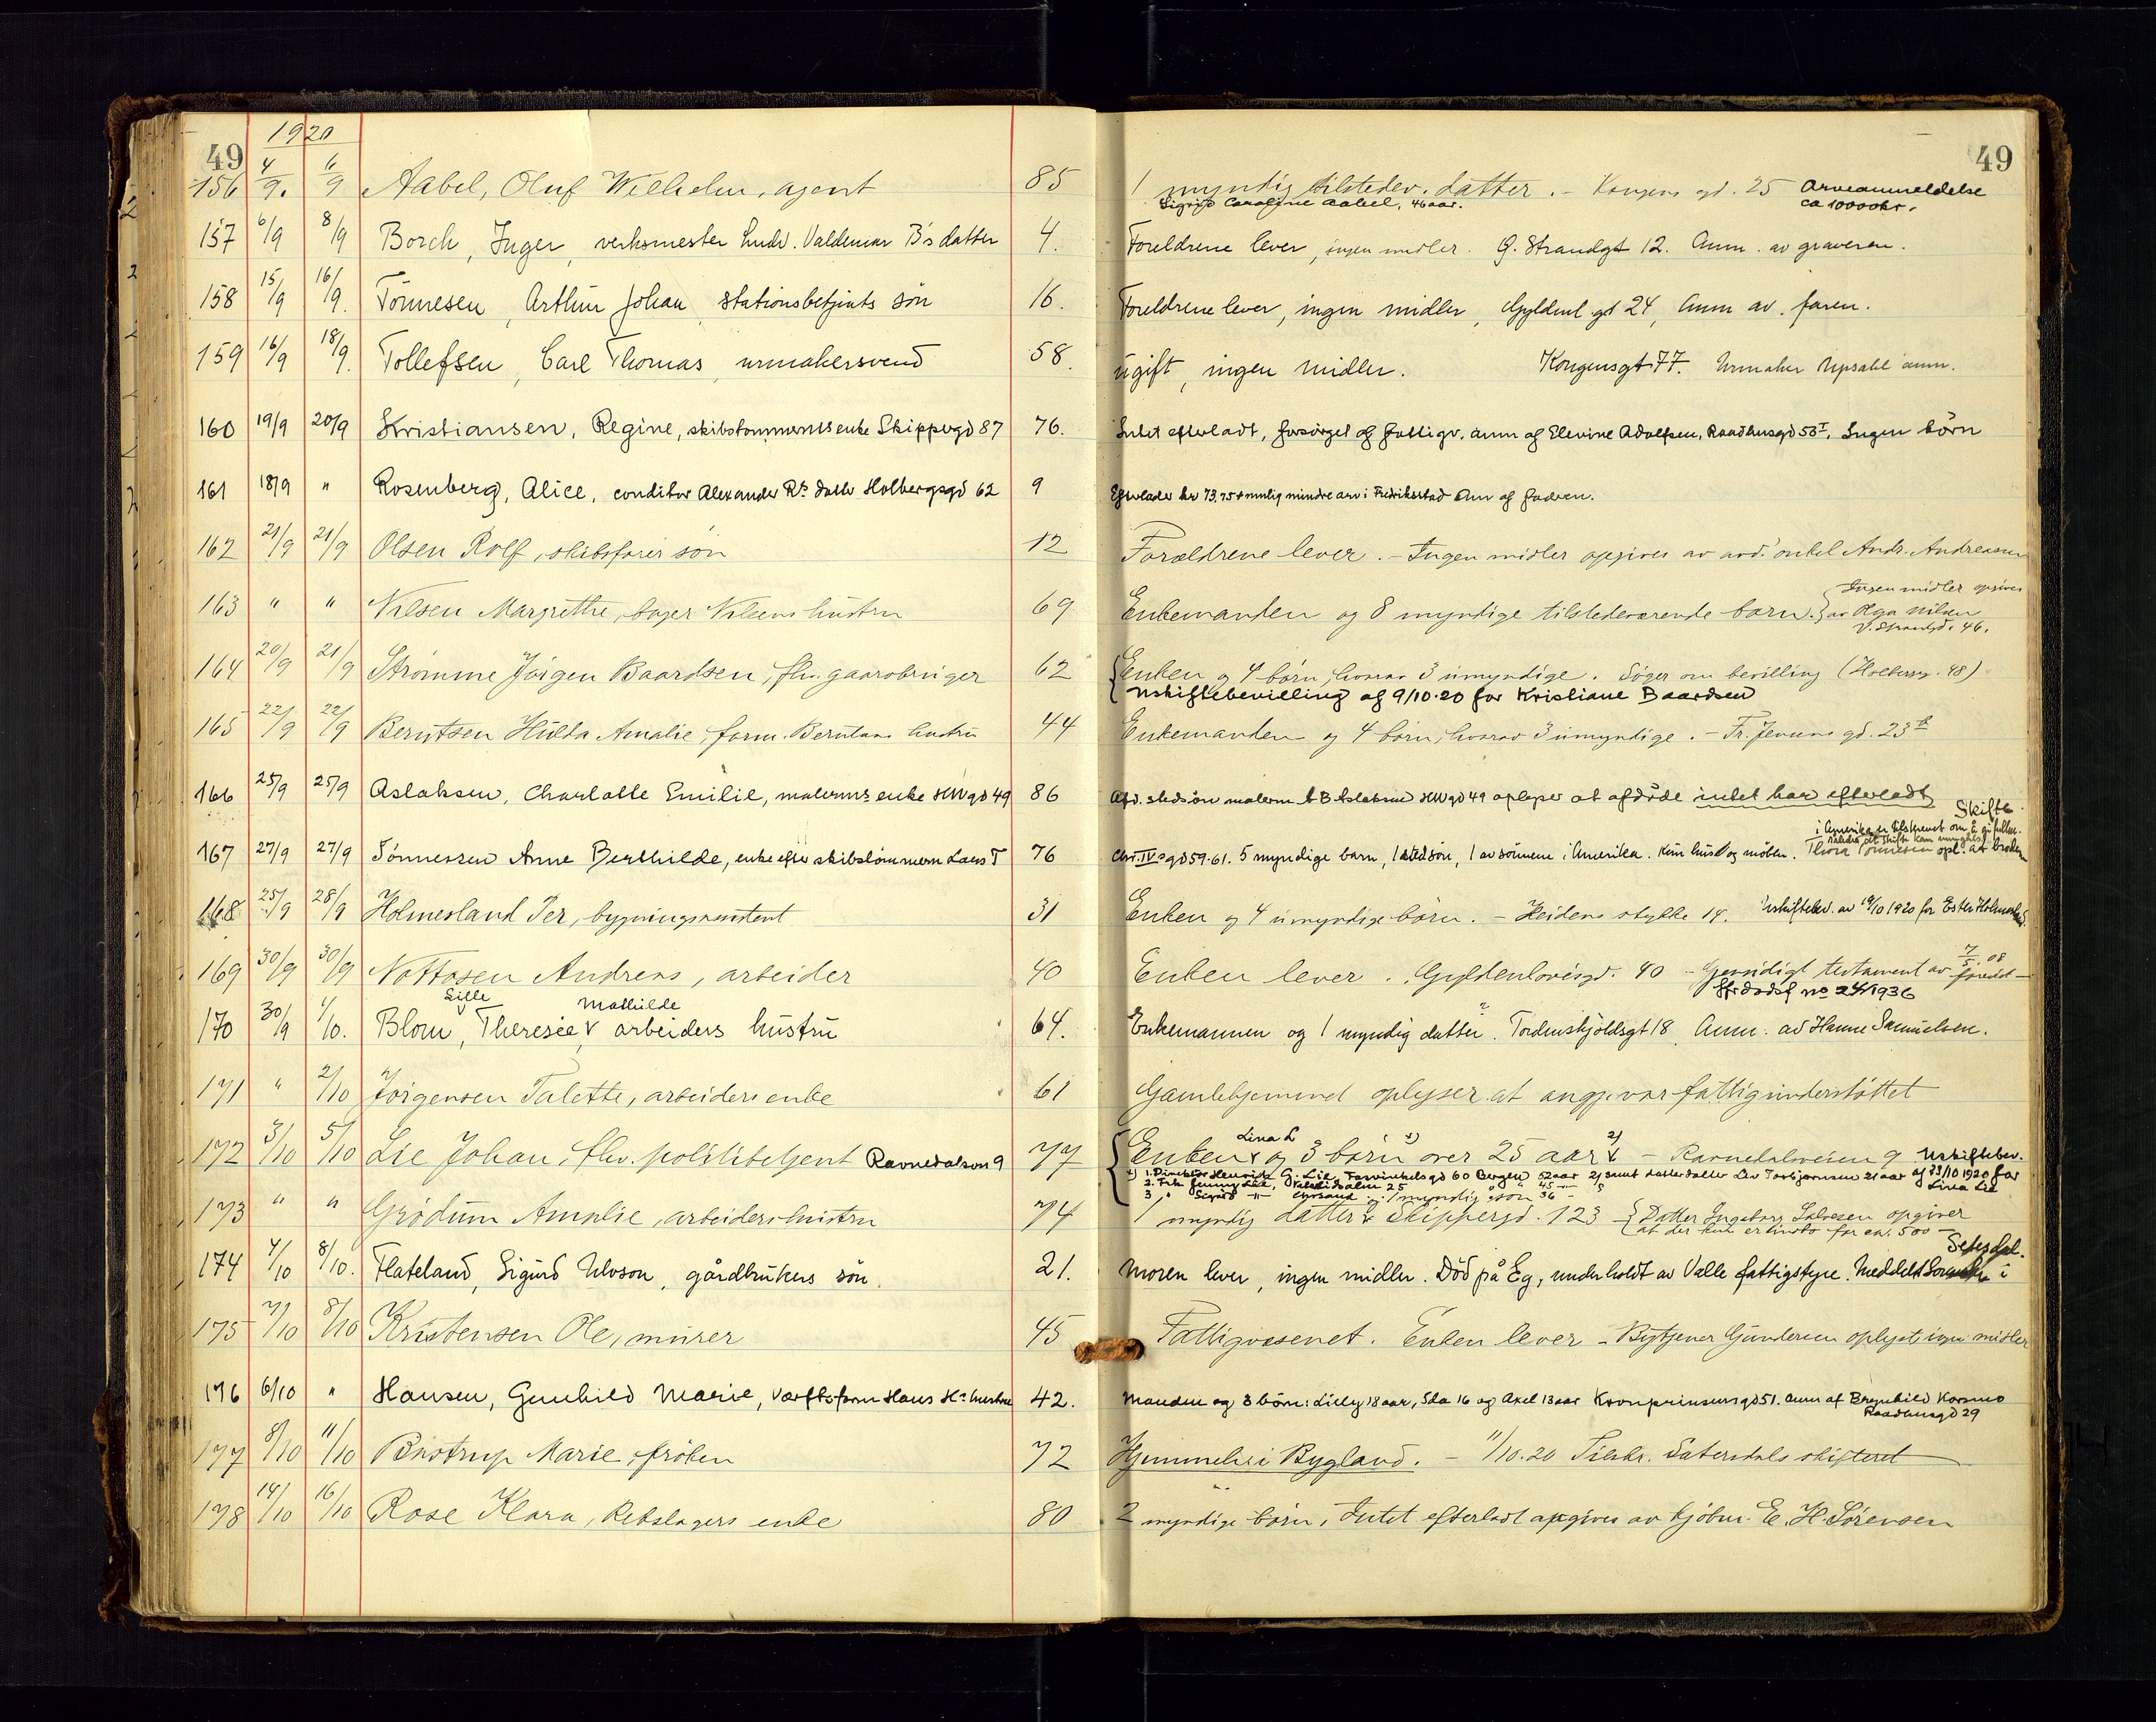 49 1920 49
156 4/9. 6/9 Aabel, Oluf Wilhelm, agent 85 1 myndig tilstedev. datter. - Kongens gd. 25 Arveanmeldelse
Sigrid Caroline Aabel, 46 aar. ca 10000 kr.
157 6/9 8/9 Borch, Inger, verksmester Ludv. Valdemar B's datter 4. Foreldrene lever, ingen midler. Ø. Strandgt 12. Anm. av graveren.
158 15/9 16/9. Tönnesen, Arthur Johan, stationsbetjents sön 16. Foreldrene lever, ingen midler, Gyldenl. gt 24, Anm av. faren.
159 16/9 18/9. Tollefsen, Carl Thomas, urmakersvend 58. ugift, ingen midler. Kongensgt 77. Urmaker Upsahl anm.
160 19/9 20/9 Kristiansen, Regine, skibstømmermands enke Skippergd 87 76. Intet efterladt, forsørget af fattigv. anm af Elevine Adolfsen, Raadhusgd 53 I. Ingen børn
161 18/9 " Rosenberg, Alice, conditor Alexander Rs datter Holbergsgd 62 9 Efterlader kr 73.75 + mulig mindre arv i Fredrikstad Anm af faderen.
162 21/9 21/9 Olsen Rolf, skibsförer sön 12 Forældrene lever. - Ingen midler opgives av avd. onkel Andr. Andreassen
163 " " Nilsen Margrethe, bager Nilsens hustru 69 Enkemanden og 8 myndige tilstedeværende børn. { Ingen midler opgives
av Olga Nilsen
V. Strandgd. 46.
164 20/9 21/9 Strömme Jörgen Baardsen, fhv. gaardbruger 62 Enken og 4 börn, hvorav 3 umyndige. Söger om bevilling (Holbersg. 48)
Uskiftebevilling af 9/10.20 for Kristiane Baardsen
165 22/9 22/9 Berntsen Hulda Amalie, form. Berntsens hustru 44 Enkemanden og 4 börn, hvorav 3 umyndige. - Fr. Jensens gd. 23 b
166 25/9 25/9 Aslaksen, Charlotte Emilie, malermrs enke HWgd 49 86 Afd. stedsøn malerm A B Aslaksen HWgd 49 oplyser at afdøde intet har efterladt
167 27/9 27/9 Tönnessen Anne Berthilde, enke efter skibstömmerm Lars T 76 Chr. IV sgd 59-61. 5 myndige barn, 1 stedsøn, 1 av sönnene i Amerika. Kun husl og møbler. Thora Tönnesen opl. at broder
i Amerika er tilskrevet om å gi fullm.
Skifte
168 25/9 28/9 Holmesland Per, bygningsassistent 31 Enken og 4 umyndige börn. - Heidens stykke 14. Uskiftebev. av 19/10 1920 for Ester Holmesland
169 30/9 30/9 Nottosen Andreas, arbeider 40 Enken lever. Gyldenlövesgd. 40 - Gjensidigt testament av 7/5 08
no 24/1936
170 30/9 1/10. Blom, Sille Theresie Mathilde arbeiders hustru 64. Enkemannen og 1 myndig datter. Tordenskjoldsgt 18. Anm. av Hanne Samuelsen.
171 " 2/10 Jörgensen Talette, arbeiders enke 61 Gamlehjemmet oplyser at angj. var fattigunderstöttet
172 3/10 5/10 Lie Johan, fhv. politibetjent Ravnedalsvn 9 77 Enken Lina L og 3 börn 1) over 25 aar 2) - Ravnedalsveien 9 Uskiftebev.
1) 1. Direktør Henrik G. Lie, 60 Bergen 52 aar 2) samt datterdatter Liv Torbjørnsen 21 aar af 23/10 1920 for
2. Frk Jenny Lie, 25 45 Lina Lie
3 " Sigurd -"- Chrsand 36
173 " " Grödum Amalie, arbeiders hustru 74 1 myndig datter & 1 myndig sön Skippergd. 123 - { Datter Ingeborg Salvesen opgiver
at der kun er indbo for ca. 500 -
174 4/10 8/10. Flateland, Sigurd Ulvson, gårdbrukers sön. 21. Moren lever, ingen midler. Död på Eg, underholdt av Valle fattigstyre. Meddelt Sorenskr i
Setesdal.
175 7/10 8/10 Kristensen Ole, murer 45 Fattigvæsenet. Enken lever - Bytjener Gundersen oplyst ingen midler
176 6/10 " Hansen, Gunhild Marie, værftsform Hans Hs hustru 42. Manden og 3 börn: Lilly 18 aar, Ida 16 og Axel 13 aar Kronprinsensgd 51. Anm af Brynhild Korsmo
Raadhusgd 29
177 8/10 11/10 Brøstrup Marie, fröken 72 Hjemmeh. i Bygland. - 11/10.20 Tilskr. Sætersdals skifteret
178 14/10 16/10 Rose Klara, Rebslagers enke 80 2 myndige börn, Intet efterladt opgives av kjøbm. E. H. Sörensen